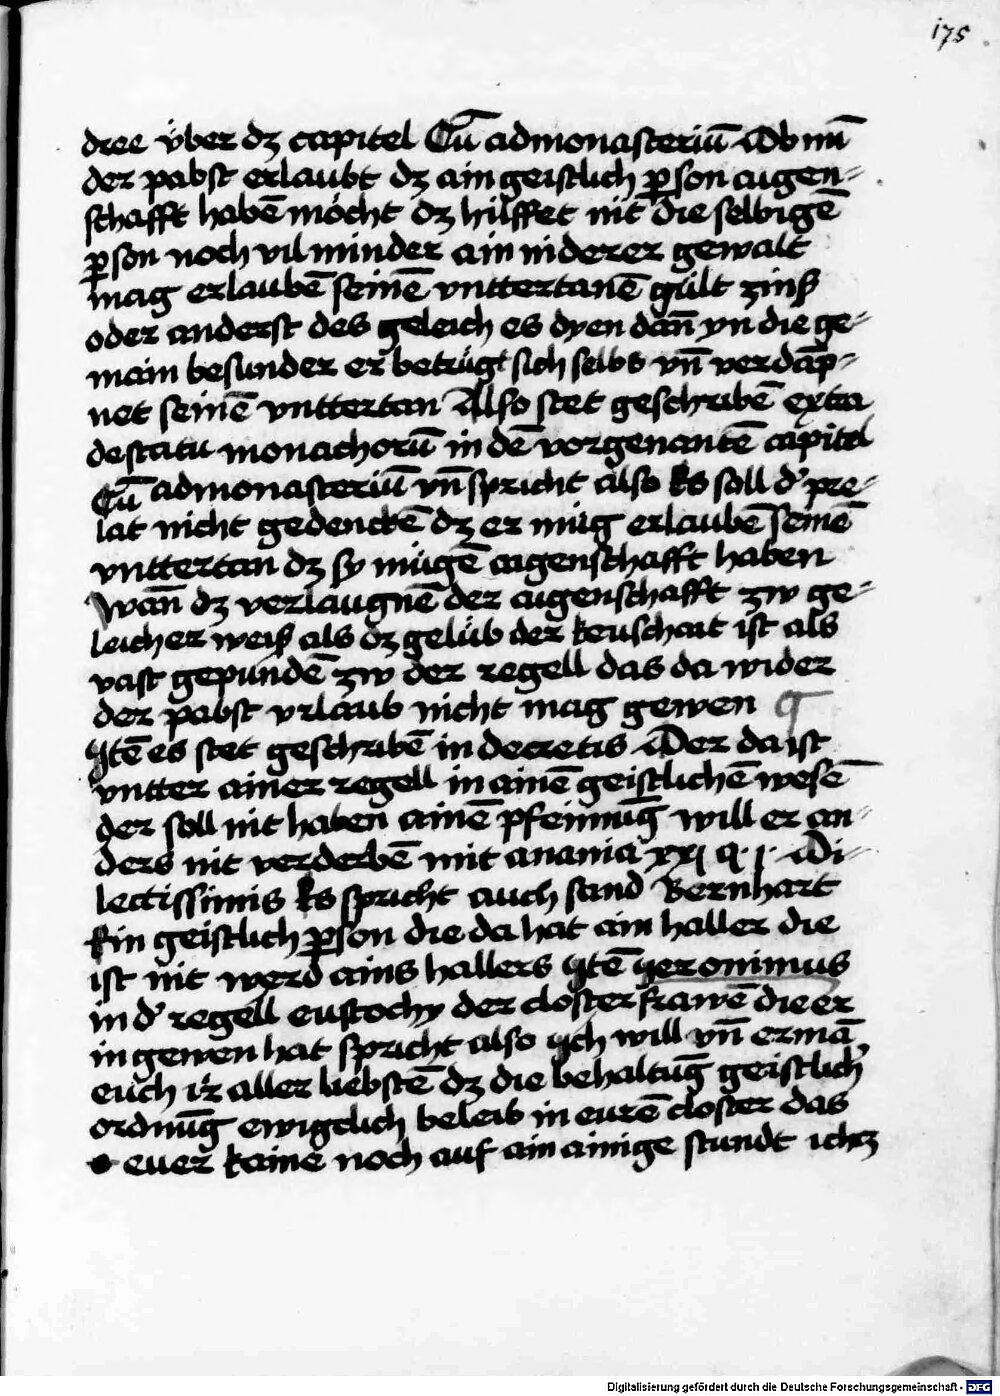 175
dree vber dz capitel Cū admonasteriū Ob nū
der pabst erlaubt dz ain geistlich pson aigen-
schafft habē mocht dz hilffet nit die selbigē
pson noch vil minder ain niderer gewalt
mag erlaubē seinē vnttertanē gült zinß
oder anderst des geleich es dyen dan̄ yn die ge-
main besunder er betrügt sich selbs vn̄ verdāp-
net seinē vnttertan Also stet geschribē extra
de statu monachorū in dē vorgenantē capitel
Cū admonasteriū vn̄ spricht also Es soll d' pre-
lat nicht gedenckē dz er müg erlaubē seinē
vnttertan dz sy mügē aigenschafft haben
Wan̄ dz verlaugnē der aigenschafft zw ge-
leicher weiß als dz gelüb der keuschait ist als
vast gepundē zw der regell das da wider
der pabst vrlaub nicht mag gewen
Itē es stet geschribē in decretis Wer da ist
vntter ainer regell in ainē geistlichē wesē
der soll nit haben ainē pfenninḡ will er an-
ders nit verderbē mit anania xxj q. j. Di-
lectissimis Es spricht auch sand Bernhart
Ein geistlich pson die da hat ain haller die
ist nit werd ains hallers Itē Ieronimus
in d' regell eustochy der closter frawē die er
in gewen hat spricht also Ich will vn̄ ermā
euch ir aller liebstē dz die behaltūg geistlich'
ordnūg ewigclich beleib in eurē closter das
euer kaine noch auf ain ainige stundt ichtz
Digitalisierung gefördert durch die Deutsche Forschungsgemeinschaft - DFG